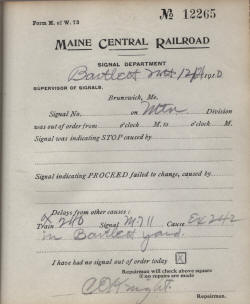 Form M. of W. 73
№ 12265
MAINE CENTRAL RAILROAD
SIGNAL DEPARTMENT
Bartlett 191
SUPERVISOR OF SIGNALS.
Brunswick, Me.
Signal No. on Mtn Division
was out of order from o'clock M. to o'clock M.
Signal was indicating STOP caused by
Signal indicating PROCEED failed to change, caused by
Delays from other causes:
Train Ex 210 Signal M711 Cause Ex 242
in Bartlett yard.
I have had no signal out of order today X
Repairman will check above square
if no repairs are made
Repairman.